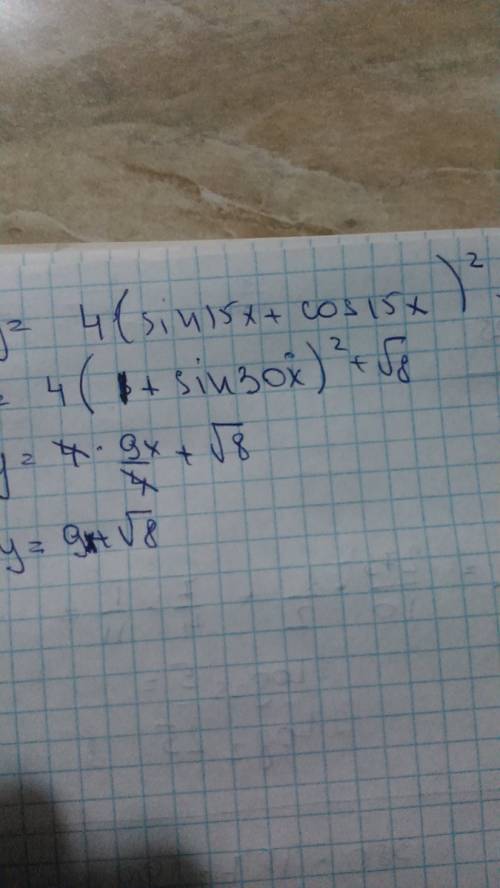 y = 4(sin15x + cos15x)²
= 4(1 + sin30x)² + √8
y = 4 · 9x/4 + √8
y = 9 + √8